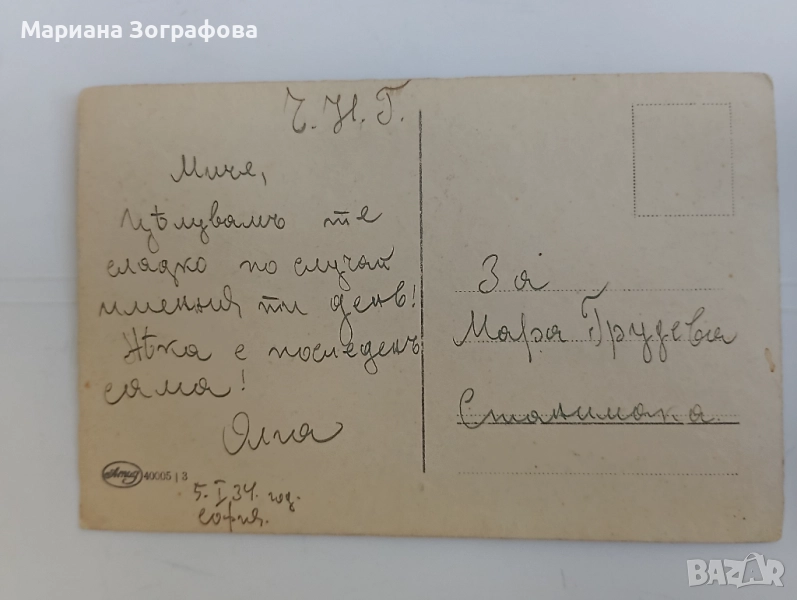 Мариана Зографова
Ч. Н. Г.
Миче,
Цѣлувамъ те
сладко по случай
именния ти день!
Нѣка е последенъ
сама!
Олга
40005 | 3
5. I 34. год.
София.
За
Мара Грудева
Станимака
BAZAR